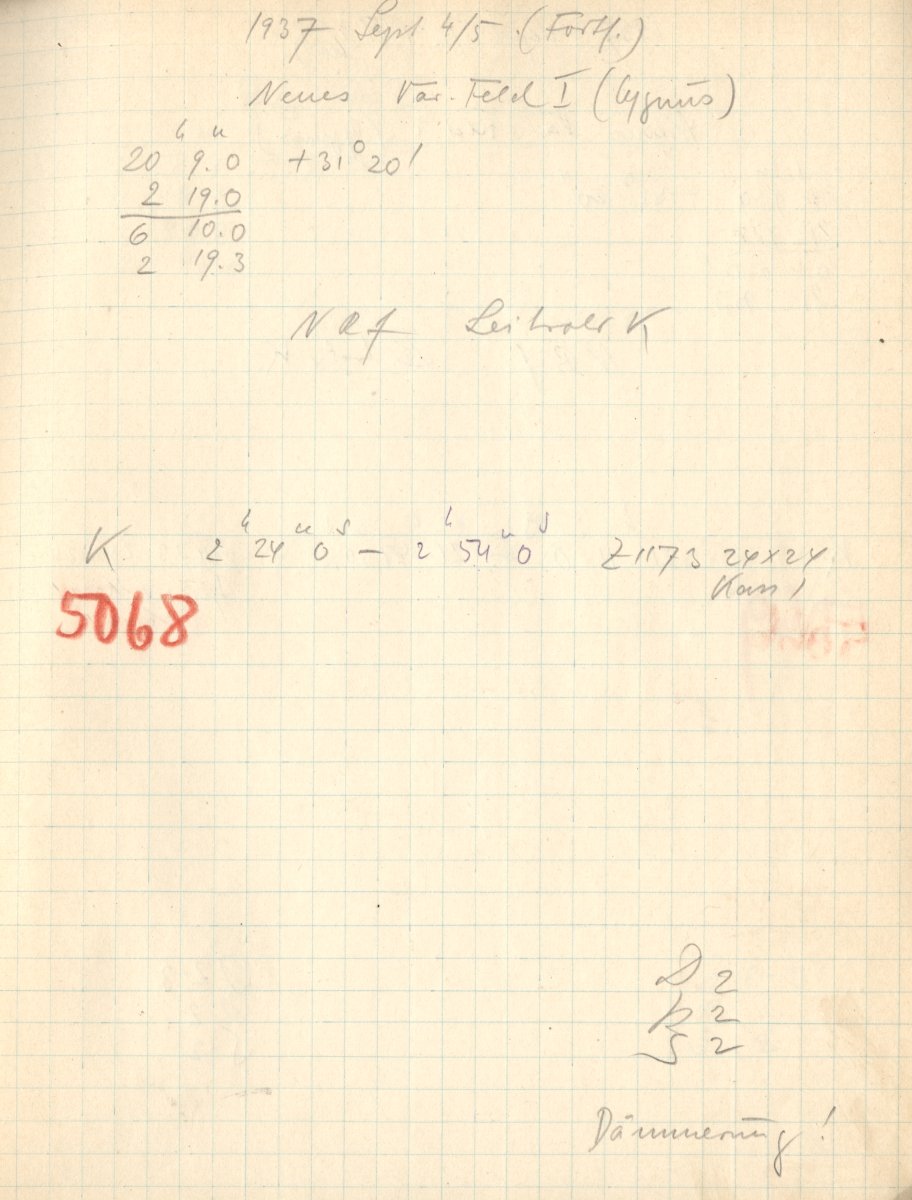 1937 Sept 4/5 (Fortf.)
Neues Var. Feld I (Cygnus)
20ʰ 9.0ᵐ +31° 20'
2 19.0
6 10.0
2 19.3
K
K 2ʰ 24ᵐ 0ˢ — 2ʰ 54ᵐ 0ˢ Z 1173 24×24
Kass 1
5068
D 2
R 2
S 2
Dämmerung!